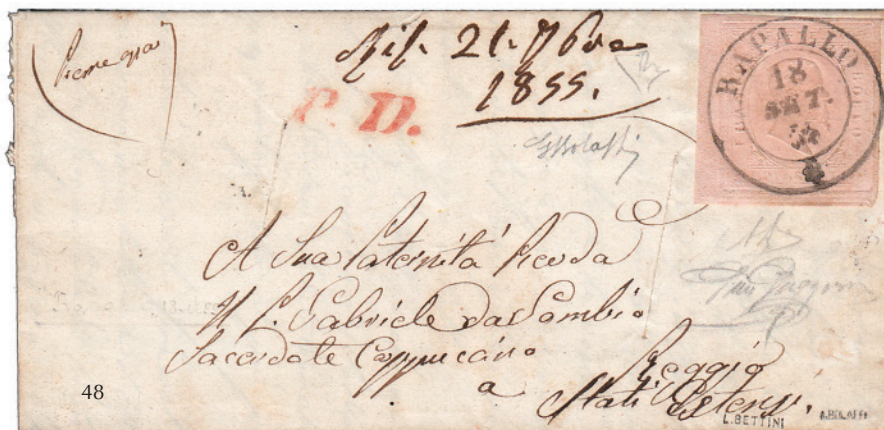 21. 7bre
1855.
P. D.
RAPALLO
18
SET.
55
A Sua Paternità Rev.da
Il P. Gabriele da Gombio
Sacerdote Cappuccino
a Reggio
Stati Estensi.
48
L. BETTINI
A. BOLAFFI